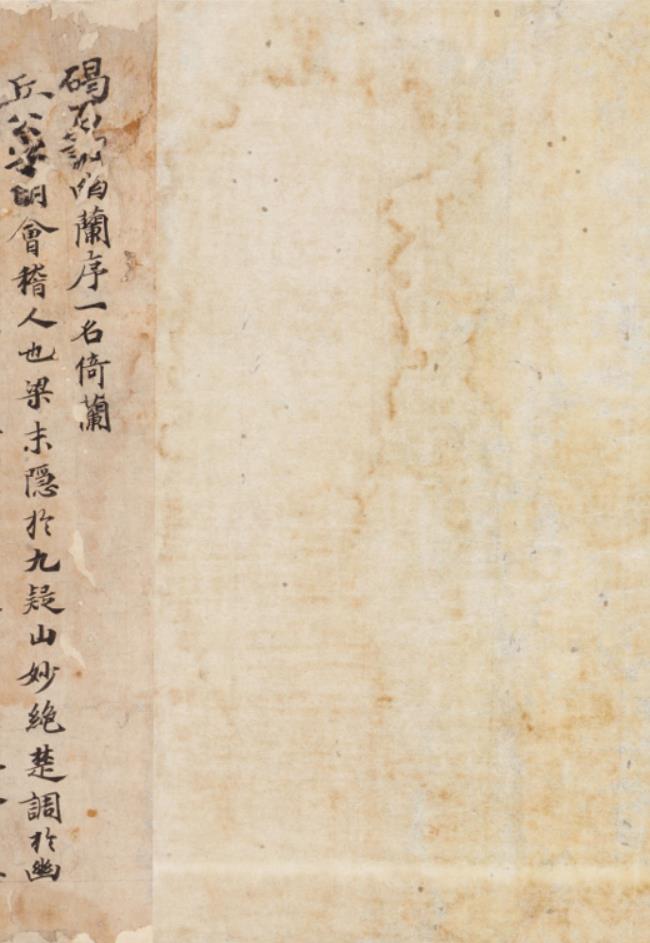 碣石調幽蘭序一名倚蘭
丘公字明會稽人也梁末隱於九疑山妙絕楚調於幽